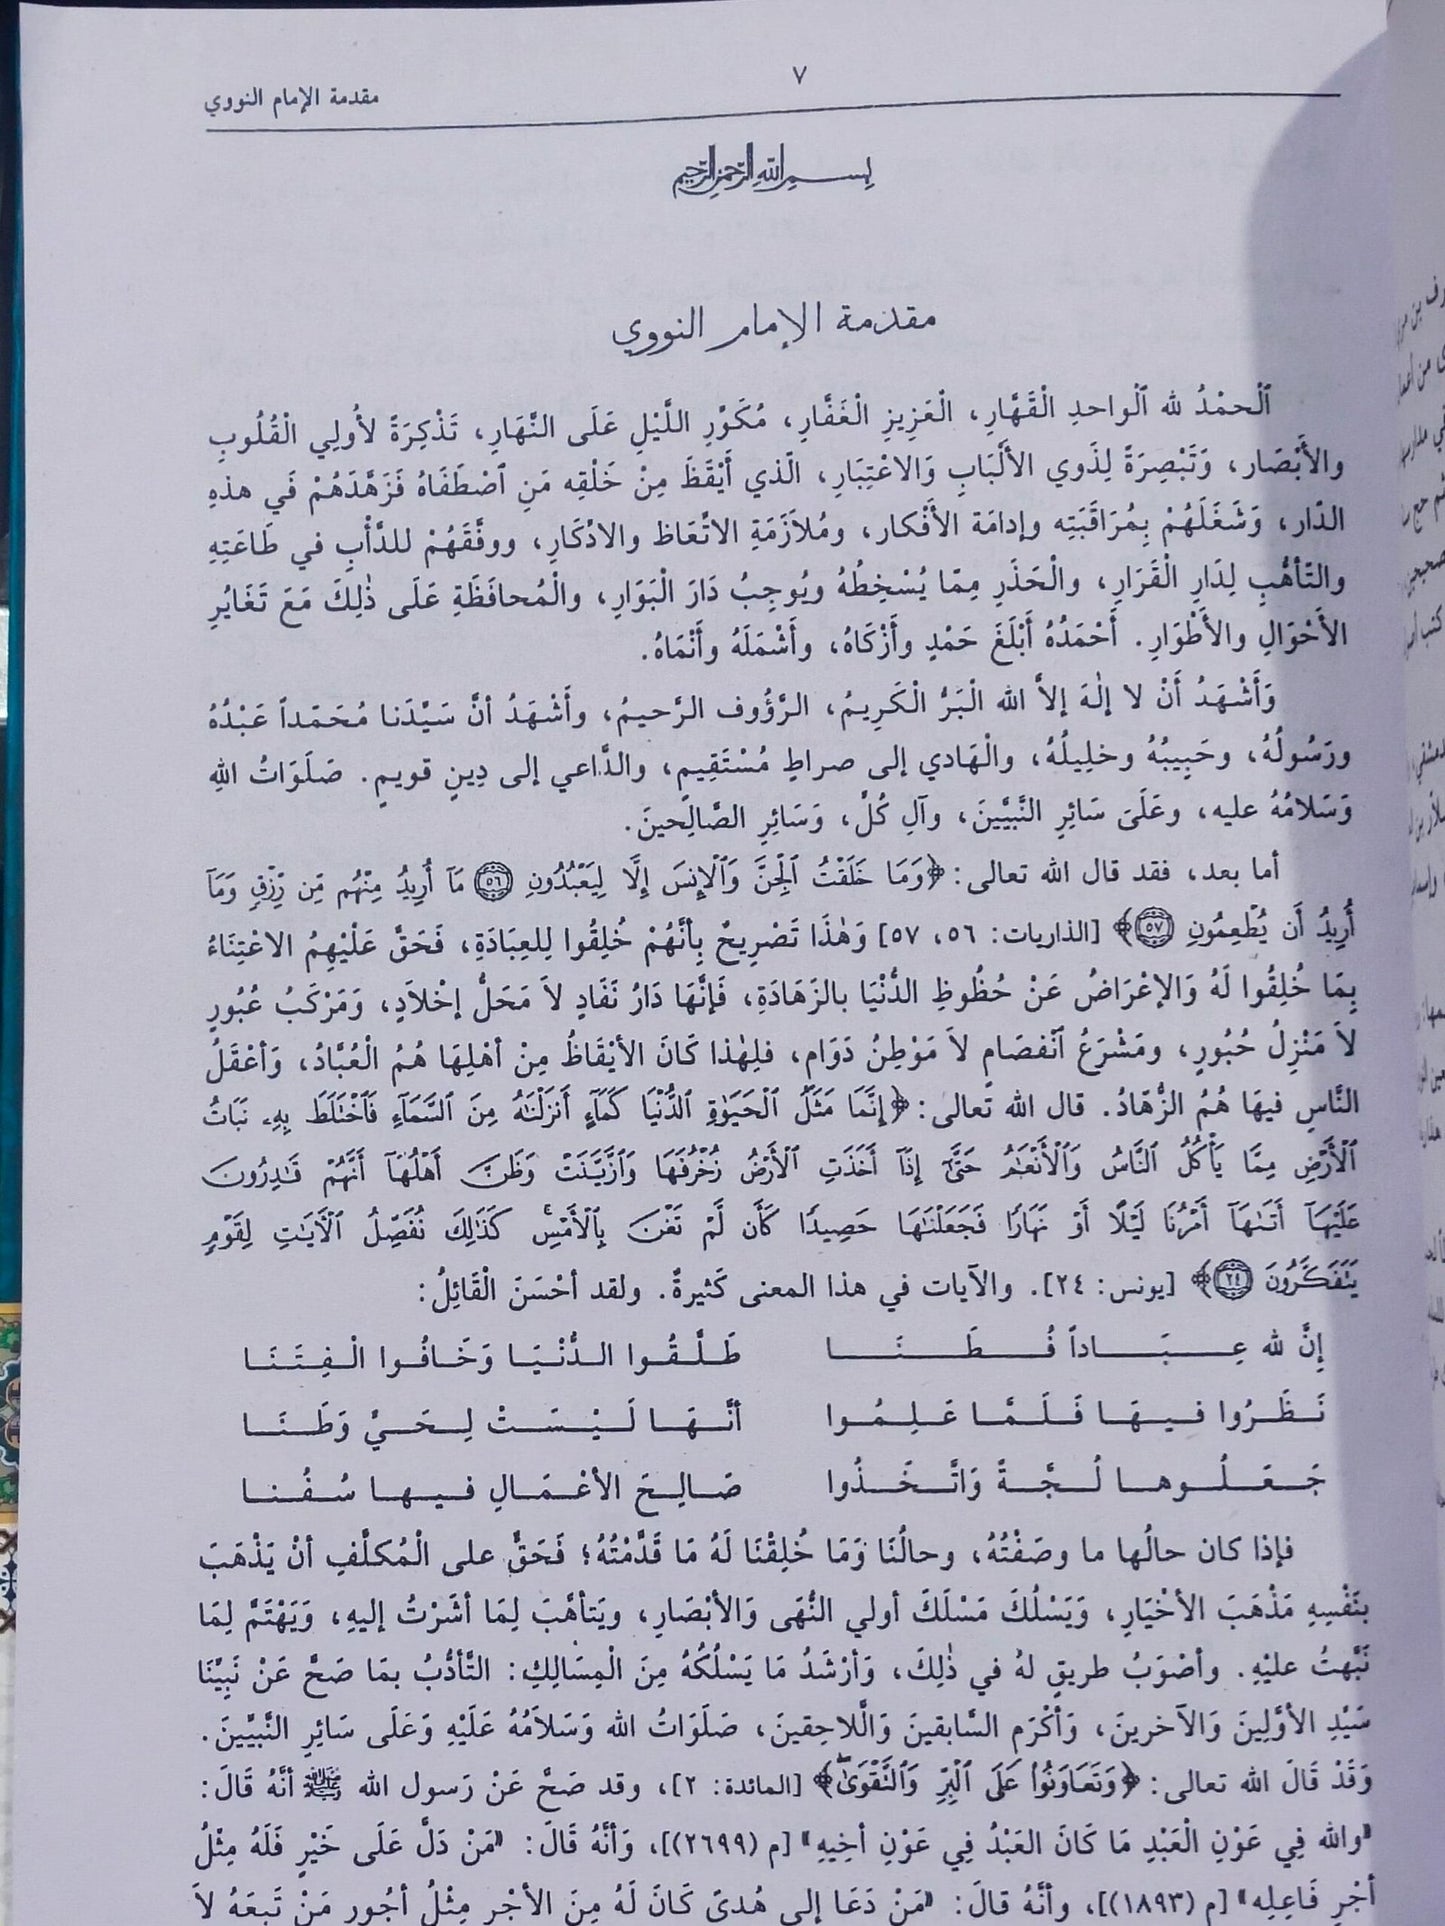 ٧
مقدمة الإمام النووي
بِسْمِ اللهِ الرَّحْمٰنِ الرَّحِيمِ
مقدمة الإمام النووي
ٱلْحمْدُ لله ٱلْواحدِ الْقَهَّارِ، الْعَزِيزِ الْغَفَّارِ، مُكَوِّرِ اللَّيْلِ عَلَى النَّهَارِ، تَذْكِرَةً لأُولِي الْقُلُوبِ
والأَبْصَار، وَتَبْصِرَةً لِذَوي الأَلْبَابِ وَالاعْتِبَارِ، الّذي أَيْقَظَ مِنْ خَلْقِه مَنِ ٱصْطَفَاهُ فَزَهَّدَهُمْ في هذهِ
الدّار، وَشَغَلَهُمْ بِمُرَاقَبَتِه وإدامَة الأَفْكار، ومُلاَزَمَةِ الاتّعَاظ والادّكَارِ، ووفَّقَهُمْ للدَّأْبِ في طَاعَتِهِ
والتّأهُّبِ لِدَارِ الْقَرَارِ، والْحَذَرِ مِمّا يُسْخِطُهُ ويُوجِبُ دَارَ الْبَوَارِ، والْمُحافَظَةِ عَلَى ذٰلِكَ مَعَ تَغَايُرِ
الأَحْوَالِ والأَطْوَارِ. أَحْمَدُهُ أَبْلَغَ حَمْدٍ وأَزْكَاهُ، وأَشْمَلَهُ وأَنْمَاهُ.
وَأَشْهَدُ أَنْ لا إلٰهَ إلاَّ الله الْبَرُّ الْكَرِيمُ، الرَّؤُوف الرَّحيمُ، وأَشْهَدُ أنَّ سَيِّدَنا مُحَمّداً عَبْدُهُ
ورَسُولُهُ، وحَبِيبُهُ وخلِيلُهُ، والْهَادي إلى صراطٍ مُسْتَقِيمٍ، والدَّاعي إلى دِينٍ قويمٍ. صَلَوَاتُ اللهِ
وَسَلامُهُ عليه، وعَلَىٰ سَائِرِ النَّبيِّينَ، وآلِ كُلٍّ، وَسَائِرِ الصَّالِحينَ.
أما بعد، فقد قال الله تعالى: ﴿وَمَا خَلَقْتُ ٱلْجِنَّ وَٱلْإِنسَ إِلَّا لِيَعْبُدُونِ ﴿٥٦﴾ مَآ أُرِيدُ مِنْهُم مِّن رِّزْقٍ وَمَآ
أُرِيدُ أَن يُطْعِمُونِ ﴿٥٧﴾﴾ [الذاريات: ٥٦، ٥٧] وَهٰذَا تَصْرِيحٌ بِأَنَّهُمْ خُلِقُوا لِلعِبَادَةِ، فَحَقَّ عَلَيْهِمُ الاعْتِنَاءُ
بِمَا خُلِقُوا لَهُ وَالإعْرَاضُ عَنْ حُظُوظِ الدُّنْيَا بالزَهَادَةِ، فَإنَّهَا دَارُ نَفَادٍ لاَ مَحَلُّ إخْلاَدٍ، وَمَرْكَبُ عُبُورٍ
لاَ مَنْزِلُ حُبُورٍ، ومَشْرَعُ ٱنْفصَامٍ لاَ مَوْطِنُ دَوَامٍ، فلِهٰذا كَانَ الأَيْقَاظُ مِنْ أهْلِهَا هُمُ الْعُبَّادُ، وَأعْقَلُ
النَّاسِ فيهَا هُمُ الزُّهّادُ. قال الله تعالى: ﴿إِنَّمَا مَثَلُ ٱلْحَيَوٰةِ ٱلدُّنْيَا كَمَآءٍ أَنزَلْنَٰهُ مِنَ ٱلسَّمَآءِ فَٱخْتَلَطَ بِهِۦ نَبَاتُ
ٱلْأَرْضِ مِمَّا يَأْكُلُ ٱلنَّاسُ وَٱلْأَنْعَٰمُ حَتَّىٰٓ إِذَآ أَخَذَتِ ٱلْأَرْضُ زُخْرُفَهَا وَٱزَّيَّنَتْ وَظَنَّ أَهْلُهَآ أَنَّهُمْ قَٰدِرُونَ
عَلَيْهَآ أَتَىٰهَآ أَمْرُنَا لَيْلًا أَوْ نَهَارًا فَجَعَلْنَٰهَا حَصِيدًا كَأَن لَّمْ تَغْنَ بِٱلْأَمْسِ ۚ كَذَٰلِكَ نُفَصِّلُ ٱلْأَيَٰتِ لِقَوْمٍ
يَتَفَكَّرُونَ ﴿٢٤﴾﴾ [يونس: ٢٤]. والآيات في هذا المعنى كَثيرةٌ. ولقد أحْسَنَ الْقَائِلُ:
إنَّ لله عِبَاداً فُطَنَا طَلَّقُوا الدُّنْيَا وَخَافُوا الْفِتَنَا
نَظَرُوا فيهَا فَلَمَّا عَلِمُوا أنَّهَا لَيْسَتْ لِحَيٍّ وَطَنَا
جَعَلُوها لُجَّةً وَاتَّخَذُوا صَالِحَ الأعْمَالِ فيها سُفُنا
فإذا كان حالُها ما وصَفْتُهُ، وحالُنَا وَمَا خُلِقْنَا لَهُ مَا قَدَّمْتُهُ؛ فَحَقٌّ على الْمُكلَّفِ أنْ يَذْهَبَ
بنَفْسِهِ مَذْهَبَ الأخْيَارِ، وَيَسْلُكَ مَسْلَكَ أولي النُّهَى وَالأبْصَارِ، ويَتأهَّبَ لِمَا أشَرْتُ إليهِ، وَيَهْتَمَّ لِمَا
نَبَّهتُ عليْهِ. وأصْوَبُ طريقٍ لهُ في ذٰلِكَ، وَأرْشَدُ مَا يَسْلُكُهُ مِنَ الْمسَالِكِ: التَّأدُّبُ بمَا صَحَّ عَنْ نَبِيِّنَا
سَيِّدِ الأوَّلِينَ وَالآخرينَ، وَأكْرَمِ السَّابقينَ وَالَّلاحِقينَ، صَلَوَاتُ الله وَسَلاَمُهُ عَلَيْهِ وَعَلَى سَائِرِ النَّبيِّينَ.
وَقَدْ قَالَ الله تعالى: ﴿وَتَعَاوَنُوا۟ عَلَى ٱلْبِرِّ وَٱلتَّقْوَىٰ﴾ [المائدة: ٢]، وقد صَحَّ عَنْ رَسول الله ﷺ أنَّهُ قَالَ:
«والله فِي عَوْنِ الْعَبْدِ مَا كَانَ العَبْدُ فِي عَوْنِ أخِيهِ» [م (٢٦٩٩)]، وَأنَّهُ قَالَ: «مَنْ دَلَّ عَلَى خَيْرٍ فَلَهُ مِثْلُ
أجْرِ فَاعِلِه» [م (١٨٩٣)]، وأنَّهُ قالَ: «مَنْ دَعَا إلى هُدىً كَانَ لَهُ مِنَ الأجْرِ مِثْلُ أجُورِ مَنْ تَبِعَهُ لاَ